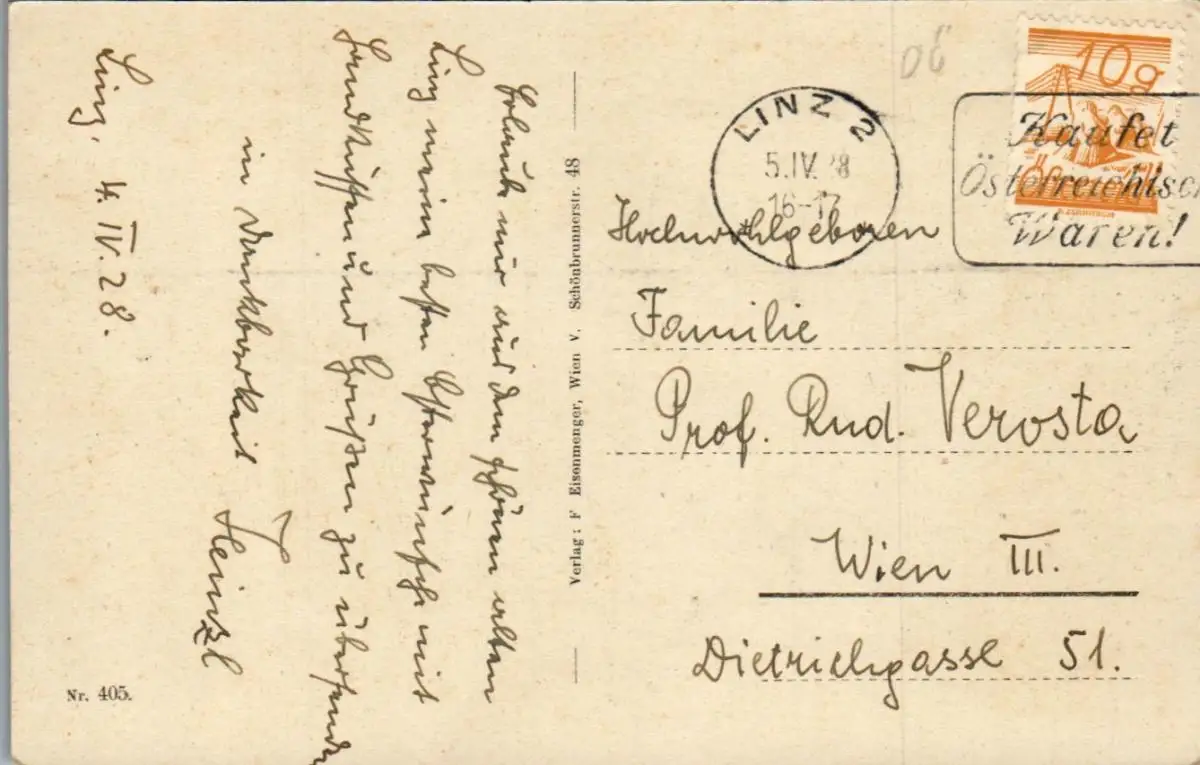 Linz, 4. IV. 28.
Erlaube mir aus dem schönen alten
Linz meine besten Osterwünsche mit
Handküssen und Grüßen zu übersenden
in Dankbarkeit
Heinzl
Nr. 405.
Verlag: F Eisenmenger, Wien V. Schönbrunnerstr. 48
06
10g
Österreich
LINZ 2
5.IV.28
16-17
Kaufet
Österreichisc
Waren!
Hochwohlgeboren
Familie
Prof. Rud. Verosta
Wien III.
Dietrichgasse 51.